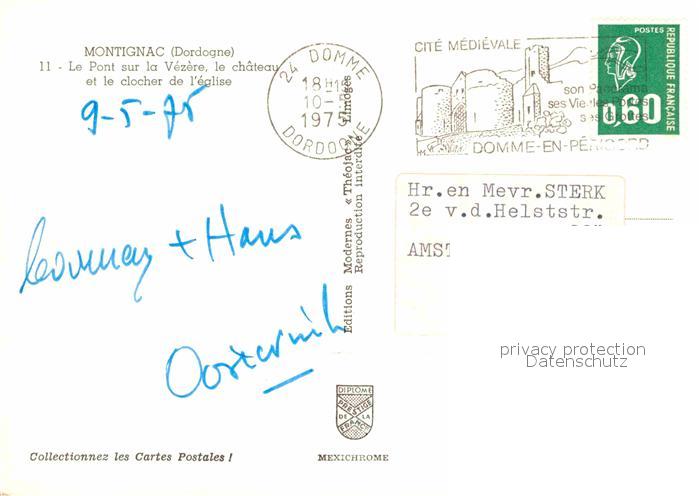 MONTIGNAC (Dordogne)
11 - Le Pont sur la Vézère, le château
et le clocher de l'église
9-5-75
24 DOMME
18H15
10-5
1975
DORDOGNE
CITÉ MÉDIÉVALE
son Panorama
ses Vieilles Portes
ses Grottes
DOMME-EN-PÉRIGORD
POSTES
REPUBLIQUE FRANÇAISE
0,60
Editions Modernes « Théojac » Limoges
Reproduction interdite
Hr.en Mevr.STERK
2e v.d.Helststr.
AMST
+ Hans
privacy protection
Datenschutz
DIPLOME
PRESTIGE
DE LA
FRANCE
Collectionnez les Cartes Postales !
MEXICHROME